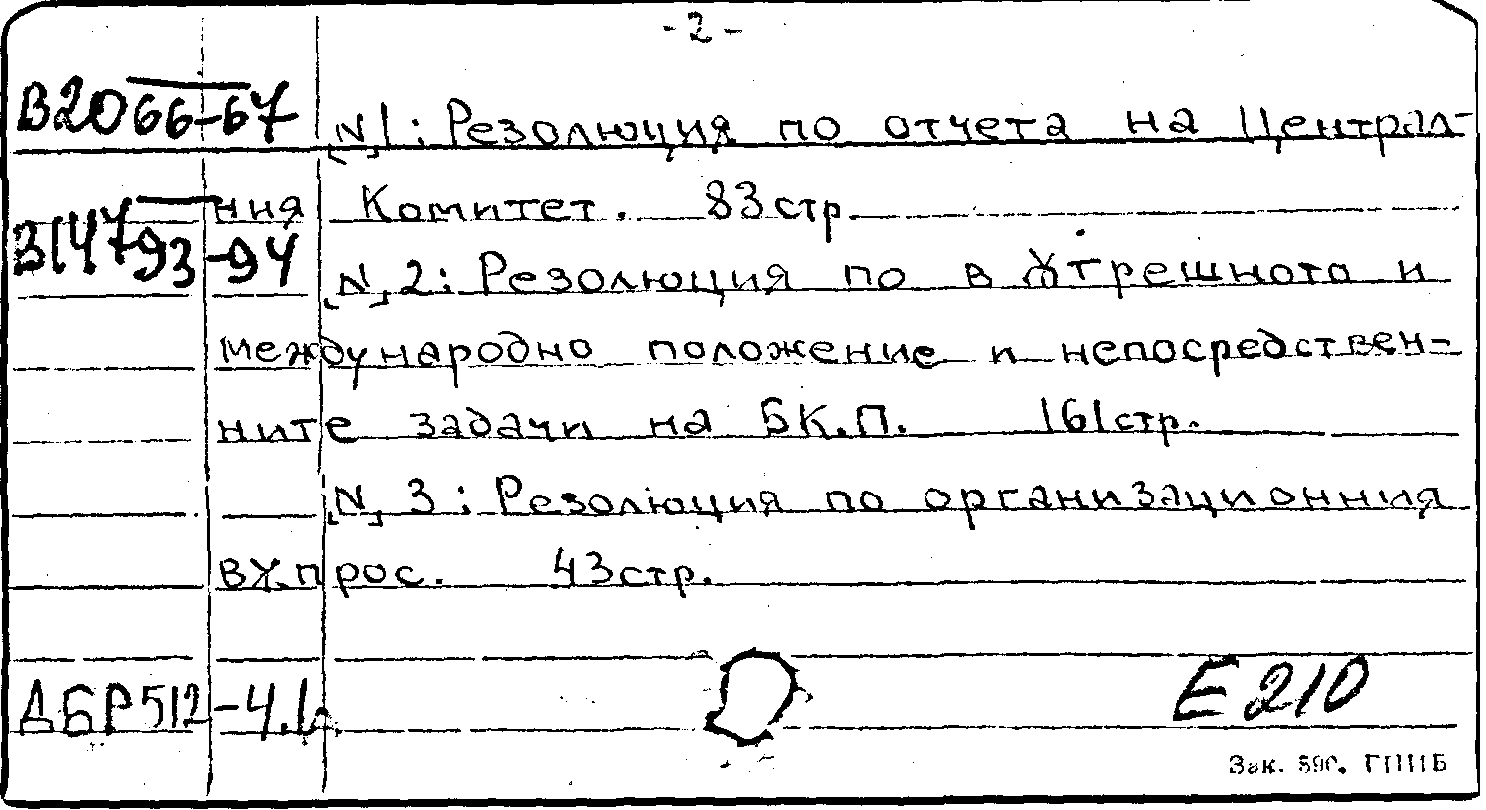 -2-
В2066-67 [N]1: Резолюция по отчета на Централ-
ния Комитет. 83стр.
В14793-94
[N] 2: Резолюция по вѫтрешното и
международно положение и непосредствен-
ните задачи на БК.П. 161стр.
[N] 3: Резолюция по организационния
вѫпрос. 43стр.
ДБР512-4.1
Е210
Зак. 590. ГПИБ